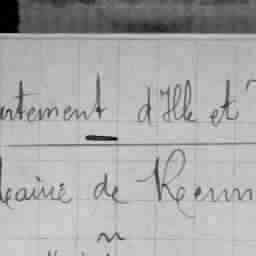 rtement d'Ille et
Mairie de Renn